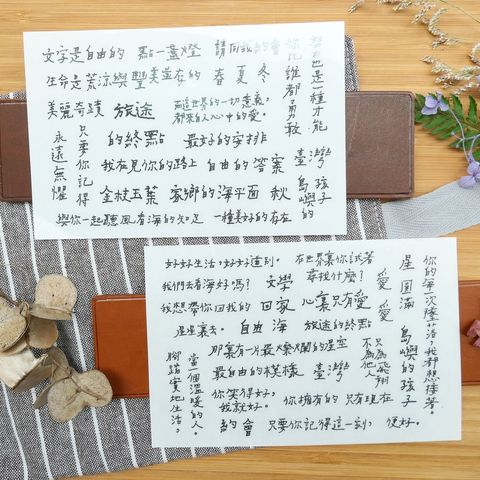 文字是自由的 點一盞燈 請同我約會
生命是荒涼與豐美並存的 春 夏 冬
美麗奇蹟 旅途
這世界的一切意義,
都來自人心中的愛。
努力也是一種才能
你比誰都勇敢
永遠無懼
只要你記得
的終點 最好的安排
我在見你的路上 自由的答案 臺灣
金枝玉葉 家鄉的海平面 秋
島嶼的
孩子
與你一起聽風看海的知足 一種美好的存在
好好生活,好好道別。 在世界裏你試著
我們去看海好嗎? 文學 尋找什麼? 愛
我想帶你回我的 回家 心裏只有愛 愛
星星裏去。 自由 海 旅途的終點
那裏有一片最燦爛的星空
最自由的模樣 臺灣
星圓滿
你的每一次隕落,我都想接著。
島嶼的孩子
不為他人
只為飛翔
腳踏實地生活,
當一個溫暖的人。
你笑得好,
我就好。
你擁有的 只有現在
約會 只要你記得這一刻, 便好。